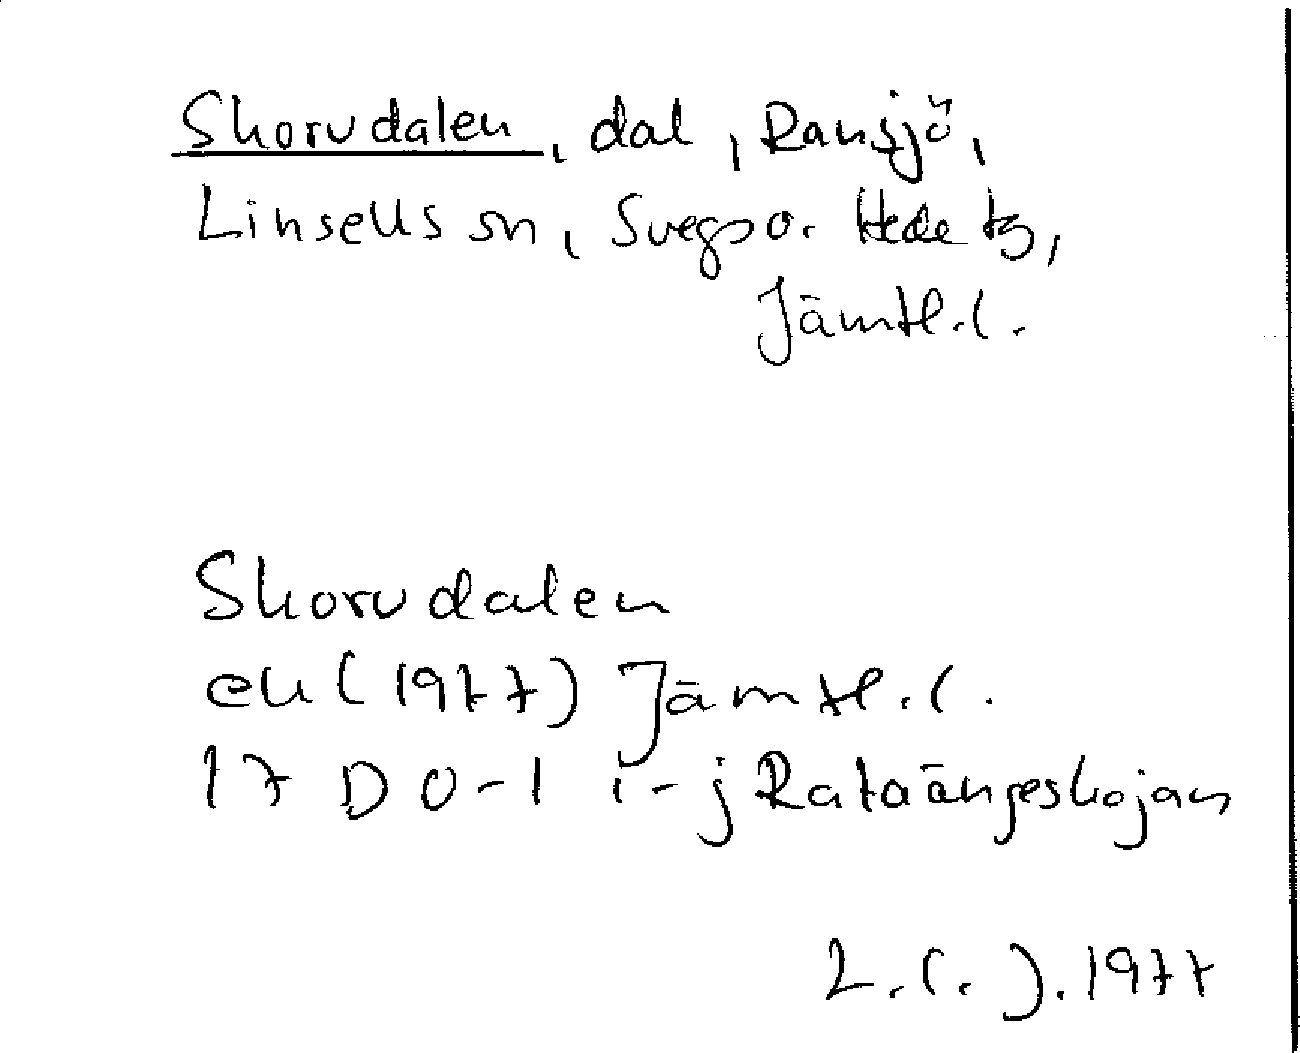 Skorvdalen, dal, Ransjö,
Linsells sn, Svegs o. Hede tg,
Jämtl. l.
Skorvdalen
ek (1977) Jämtl. l.
17 D 0-1 i-j Rataängeskojan
1977